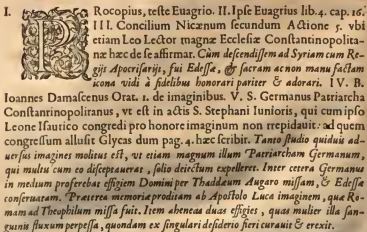 I. PRocopius, teste Euagrio. II. Ipse Euagrius lib.4. cap.16.
III. Concilium Nicænum secundum Actione 5. vbi
etiam Leo Lector magnæ Ecclesiæ Constantinopolita-
næ hæc de se affirmat. Cùm descendissem ad Syriam cum Re-
gijs Apocrisarijs, fui Edessæ, & sacram ac non manu factam
icona vidi à fidelibus honorari pariter & adorari. IV. B.
Ioannes Damascenus Orat. 1. de imaginibus. V. S. Germanus Patriarcha
Constantinopolitanus, vt est in actis S. Stephani Iunioris, qui cum ipso
Leone Isaurico congredi pro honore imaginum non trepidauit: ad quem
congressum allusit Glycas dum pag. 4. hæc scribit. Tanto studio quiduis ad-
uersus imagines molitus est, vt etiam magnum illum Patriarcham Germanum,
qui multū cum eo disceptauerat, solio deiectum expelleret. Inter cetera Germanus
in medium proferebat effigiem Domini per Thaddæum Augaro missam, & Edessæ
conseruatam. Præterea memoriæ proditam ab Apostolo Luca imaginem, quæ Ro-
mam ad Theophilum missa fuit. Item aheneas duas effigies, quas mulier illa san-
guinis fluxum perpessa, quondam ex singulari desiderio fieri curauit & erexit.